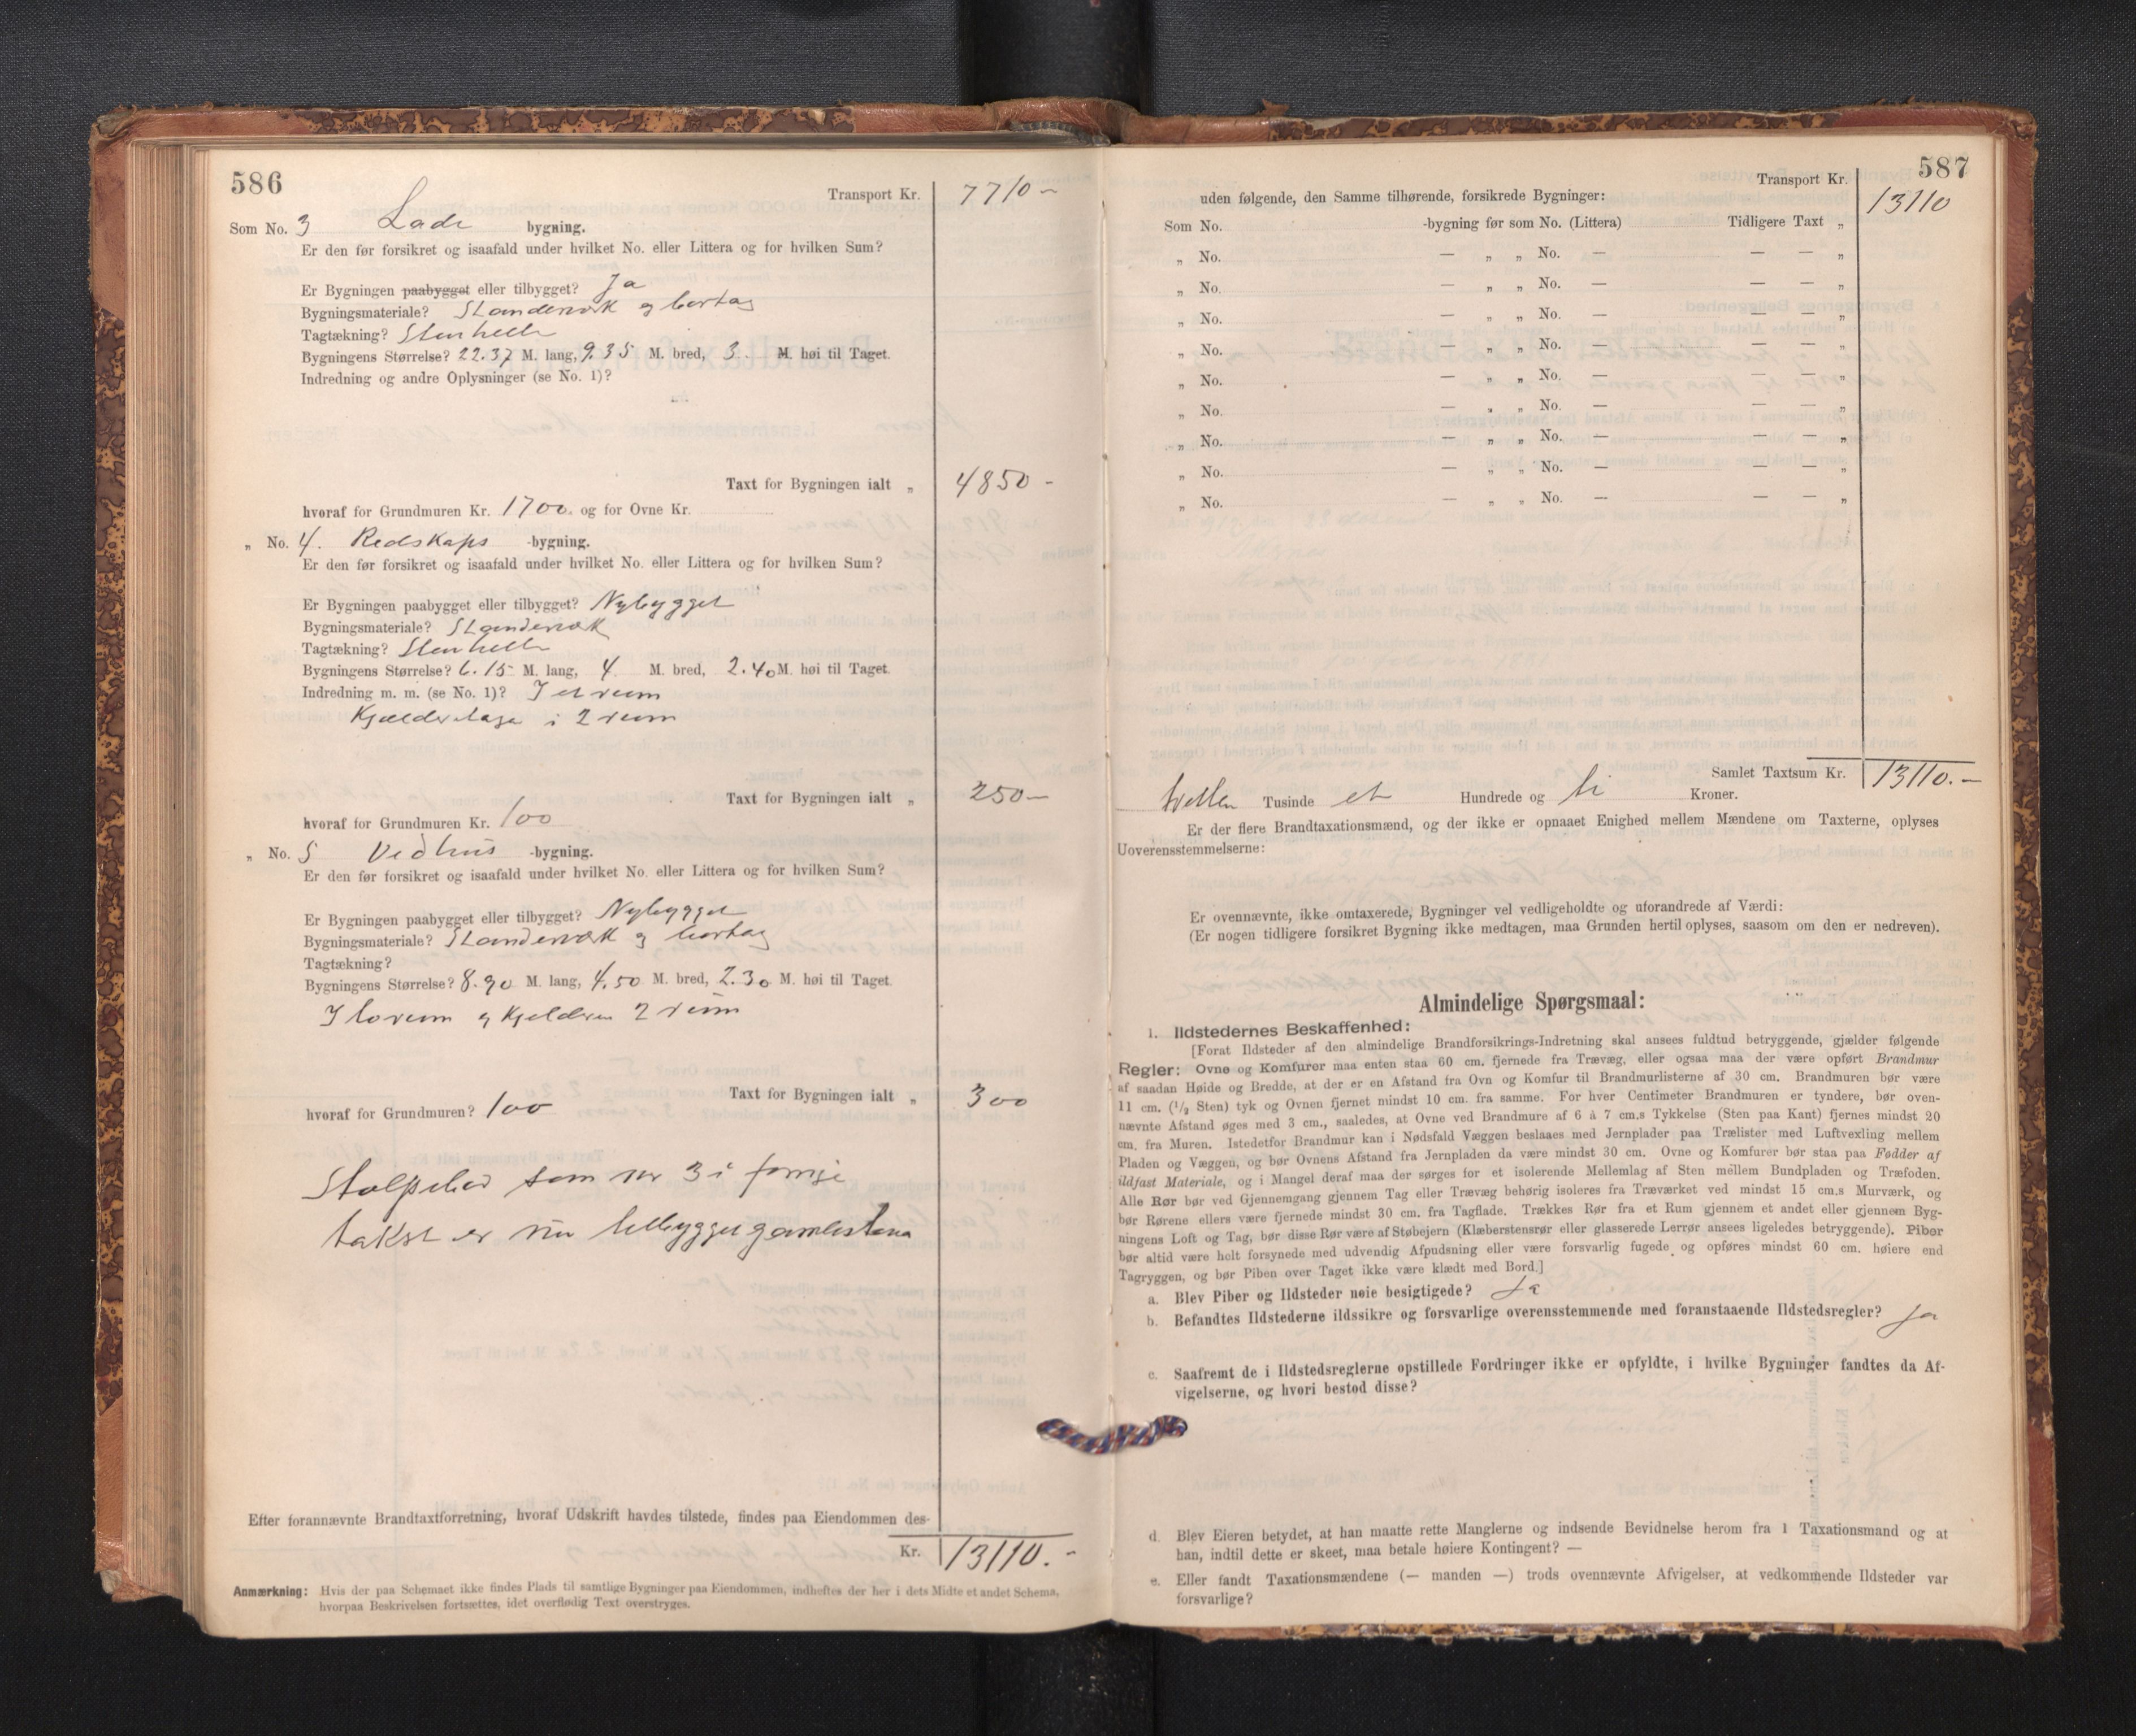 586
Transport Kr. 7710 –
Som No. 3 Lade bygning.
Er den før forsikret og isaafald under hvilket No. eller Littera og for hvilken Sum?
Er Bygningen paabygget eller tilbygget? Ja
Bygningsmateriale? Standerværk og bortag
Tagtækning? Stenhelle
Bygningens Størrelse? 22.37 M. lang, 9.35 M. bred, 3 M. høi til Taget.
Indredning og andre Oplysninger (se No. 1)?
Taxt for Bygningen ialt „ 4850 -
hvoraf for Grundmuren Kr. 1700. og for Ovne Kr.
„ No. 4. Redskaps -bygning.
Er den før forsikret og isaafald under hvilket No. eller Littera og for hvilken Sum?
Er Bygningen paabygget eller tilbygget? Nybygget
Bygningsmateriale? Standerværk
Tagtækning? Stenhelle
Bygningens Størrelse? 6.15 M. lang, 4 M. bred, 2.40 M. høi til Taget.
Indredning m. m. (se No. 1)? I et rum
Kjælderetage i 2 rum
Taxt for Bygningen ialt „ 250 –
hvoraf for Grundmuren Kr. 100
„ No. 5 Vedhus -bygning.
Er den før forsikret og isaafald under hvilket No. eller Littera og for hvilken Sum?
Er Bygningen paabygget eller tilbygget? Nybygget
Bygningsmateriale? Standerværk og bortag
Tagtækning?
Bygningens Størrelse? 8.90 M. lang, 4.50 M. bred, 2.30 M. høi til Taget.
I to rum og Kjelderen 2 rum
Taxt for Bygningen ialt „ 300
hvoraf for Grundmuren? 100
som nr 3 i forrige
takst er nu
Efter forannævnte Brandtaxtforretning, hvoraf Udskrift havdes tilstede, findes paa Eiendommen des-
Kr. 13110. -
Anmærkning: Hvis der paa Schemaet ikke findes Plads til samtlige Bygninger paa Eiendommen, indheftes der her i dets Midte et andet Schema,
hvorpaa Beskrivelsen fortsættes, idet overflødig Text overstryges.
587
Transport Kr. 13110
uden følgende, den Samme tilhørende, forsikrede Bygninger:
Som No. -bygning før som No. (Littera) Tidligere Taxt „
„ No. — „ „ No. — — — „
„ No. — „ „ No. — — — „
„ No. — „ „ No. — — — „
„ No. — „ „ No. — — — „
„ No. — „ „ No. — — — „
„ No. — „ „ No. — — — „
„ No. — „ „ No. — — — „
„ No. — „ „ No. — — — „
„ No. — „ „ No. — — — „
Samlet Taxtsum Kr. 13110. –
tretten Tusinde et Hundrede og ti Kroner.
Er der flere Brandtaxationsmænd, og der ikke er opnaaet Enighed mellem Mændene om Taxterne, oplyses
Uoverensstemmelserne:
Er ovennævnte, ikke omtaxerede, Bygninger vel vedligeholdte og uforandrede af Værdi:
(Er nogen tidligere forsikret Bygning ikke medtagen, maa Grunden hertil oplyses, saasom om den er nedreven).
Almindelige Spørgsmaal:
1. Ildstedernes Beskaffenhed:
[Forat Ildsteder af den almindelige Brandforsikrings-Indretning skal ansees fuldtud betryggende, gjælder følgende
Regler: Ovne og Komfurer maa enten staa 60 cm. fjernede fra Trævæg, eller ogsaa maa der være opført Brandmur
af saadan Høide og Bredde, at der er en Afstand fra Ovn og Komfur til Brandmurlisterne af 30 cm. Brandmuren bør være
11 cm. (1/2 Sten) tyk og Ovnen fjernet mindst 10 cm. fra samme. For hver Centimeter Brandmuren er tyndere, bør oven-
nævnte Afstand øges med 3 cm., saaledes, at Ovne ved Brandmure af 6 à 7 cm.s Tykkelse (Sten paa Kant) fjernes mindst 20
cm. fra Muren. Istedetfor Brandmur kan i Nødsfald Væggen beslaaes med Jernplader paa Trælister med Luftvexling mellem
Pladen og Væggen, og bør Ovnens Afstand fra Jernpladen da være mindst 30 cm. Ovne og Komfurer bør staa paa Fødder af
ildfast Materiale, og i Mangel deraf maa der sørges for et isolerende Mellemlag af Sten mellem Bundpladen og Træfoden.
Alle Rør bør ved Gjennemgang gjennem Tag eller Trævæg behørig isoleres fra Træværket ved mindst 15 cm.s Murværk, og
bør Rørene ellers være fjernede mindst 30 cm. fra Tagflade. Trækkes Rør fra et Rum gjennem et andet eller gjennem Byg-
ningens Loft og Tag, bør disse Rør være af Støbejern (Klæberstensrør eller glasserede Lerrør ansees ligeledes betryggende). Piber
bør altid være helt forsynede med udvendig Afpudsning eller være forsvarlig fugede og opføres mindst 60 cm. høiere end
Tagryggen, og bør Piben over Taget ikke være klædt med Bord.]
a. Blev Piber og Ildsteder nøie besigtigede? Ja
b. Befandtes Ildstederne ildssikre og forsvarlige overensstemmende med foranstaaende Ildstedsregler? Ja
c. Saafremt de i Ildstedsreglerne opstillede Fordringer ikke er opfyldte, i hvilke Bygninger fandtes da Af-
vigelserne, og hvori bestod disse?
d. Blev Eieren betydet, at han maatte rette Manglerne og indsende Bevidnelse herom fra 1 Taxationsmand og at
han, indtil dette er skeet, maa betale høiere Kontingent? —
e. Eller fandt Taxationsmændene (— manden —) trods ovennævnte Afvigelser, at vedkommende Ildsteder var
forsvarlige?